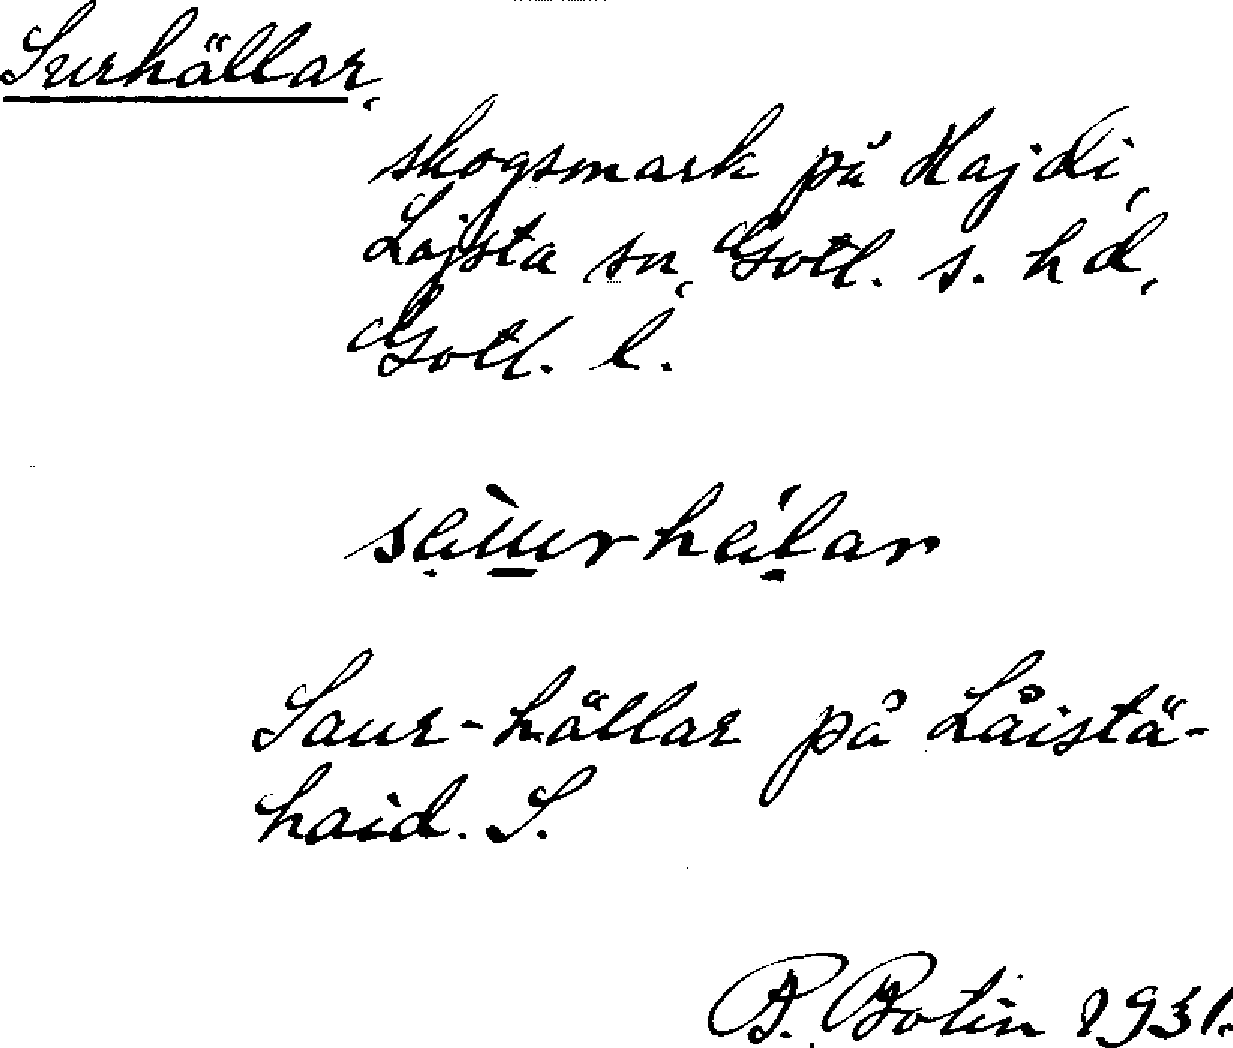 Surhällar,
skogsmark på Hajdi,
Lojsta sn, Gotl. s. hd,
Gotl. l.
Saur-hällar på Låistä-
haid. S.
B. Bolin 1931.